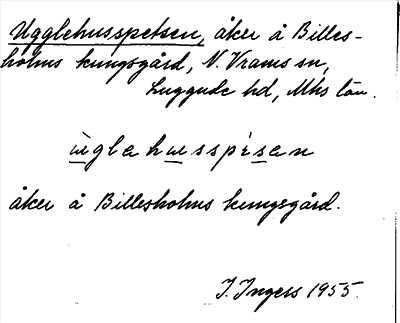 Ugglehusspetsen, åker å Billes-
holms kungsgård, N. Vrams sn,
Luggude hd, Mhs län.
ùglahusspìsan
åker å Billesholms kungsgård.
I. Ingers 1955.